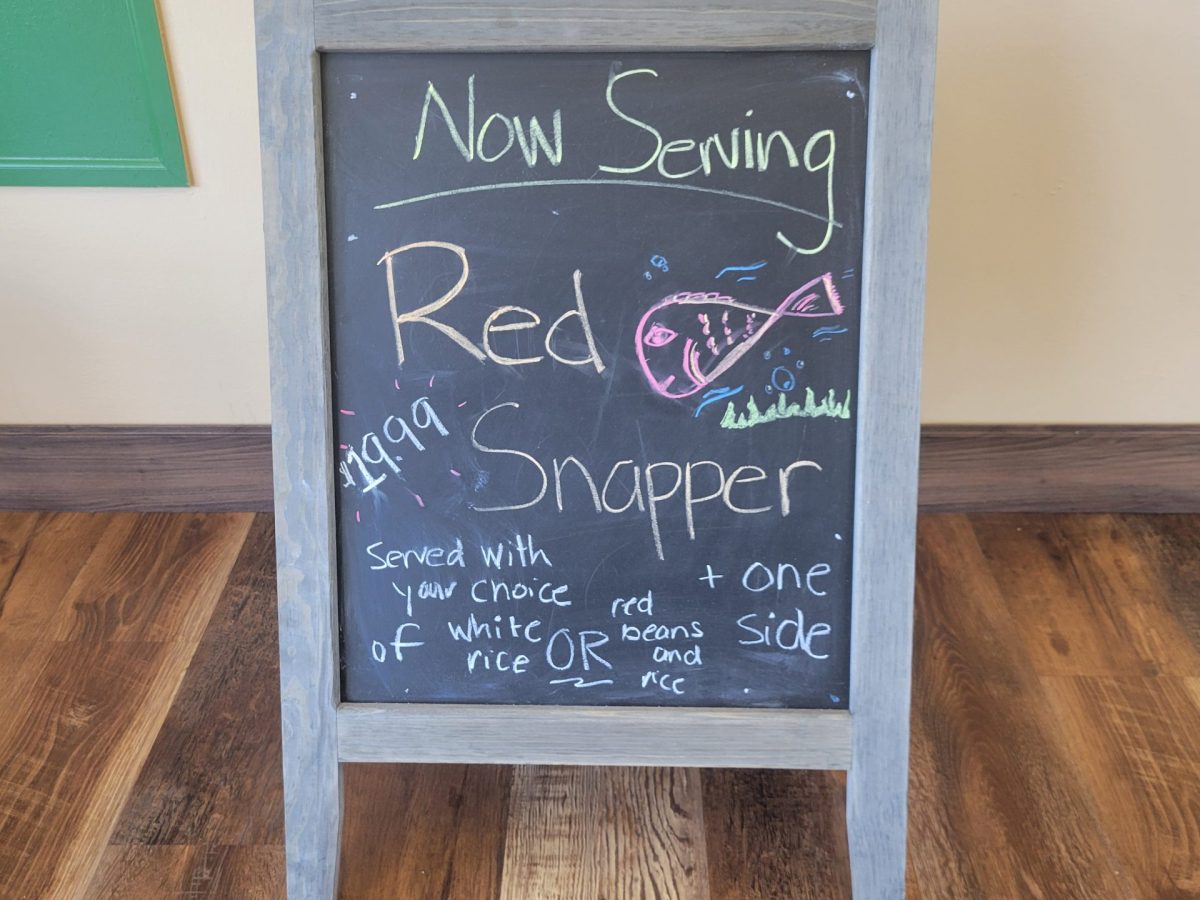 Now Serving
Red
Snapper
$19.99
Served with
your choice
of white
rice
OR
red
beans
and
rice
+ one
side